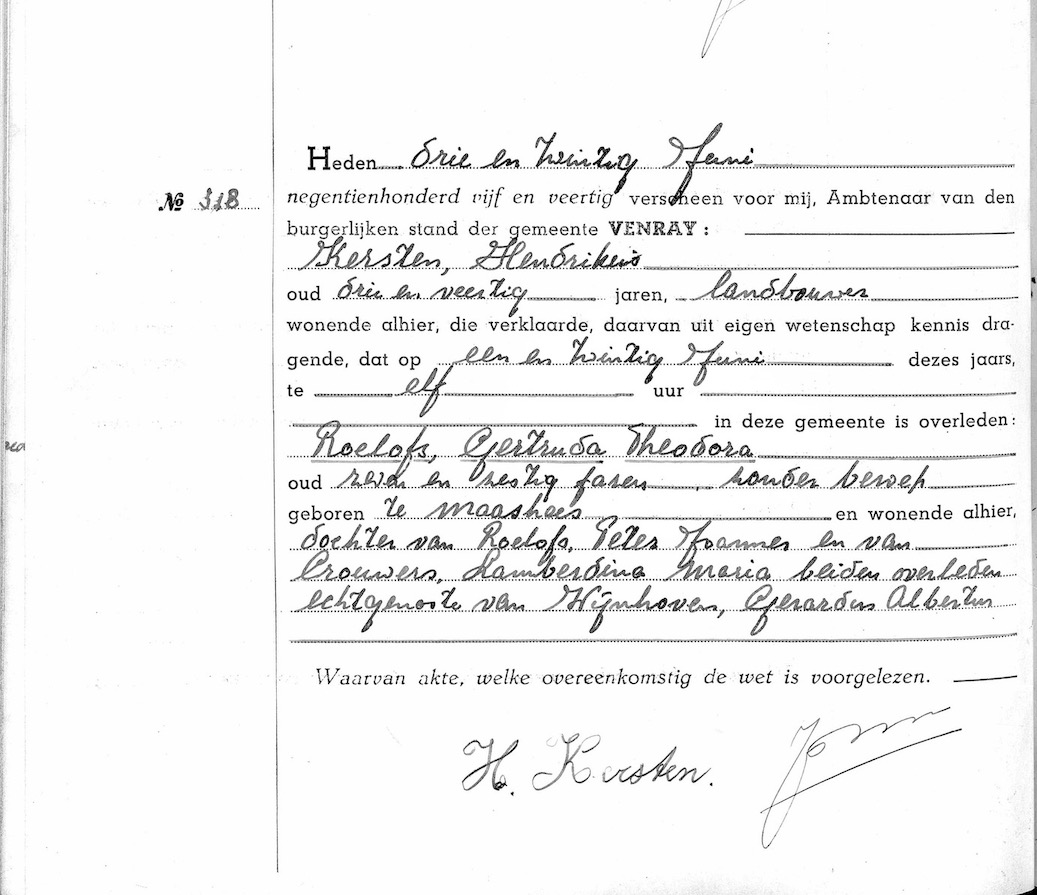 Heden drie en twintig Juni
№ 318
negentienhonderd vijf en veertig verscheen voor mij, Ambtenaar van den
burgerlijken stand der gemeente VENRAY :
Kersten, Hendrikus
oud drie en veertig jaren, landbouwer
wonende alhier, die verklaarde, daarvan uit eigen wetenschap kennis dra-
gende, dat op een en twintig Juni dezes jaars,
te elf uur
in deze gemeente is overleden:
Roelofs, Gertruda Theodora
oud zeven en zestig jaren, zonder beroep
geboren te Maashees en wonende alhier,
dochter van Roelofs, Peter Joannes en van
Crouwers, Lamberdina Maria beiden overleden
echtgenoote van Wijnhoven, Gerardus Albertus
Waarvan akte, welke overeenkomstig de wet is voorgelezen.
H. Kersten.